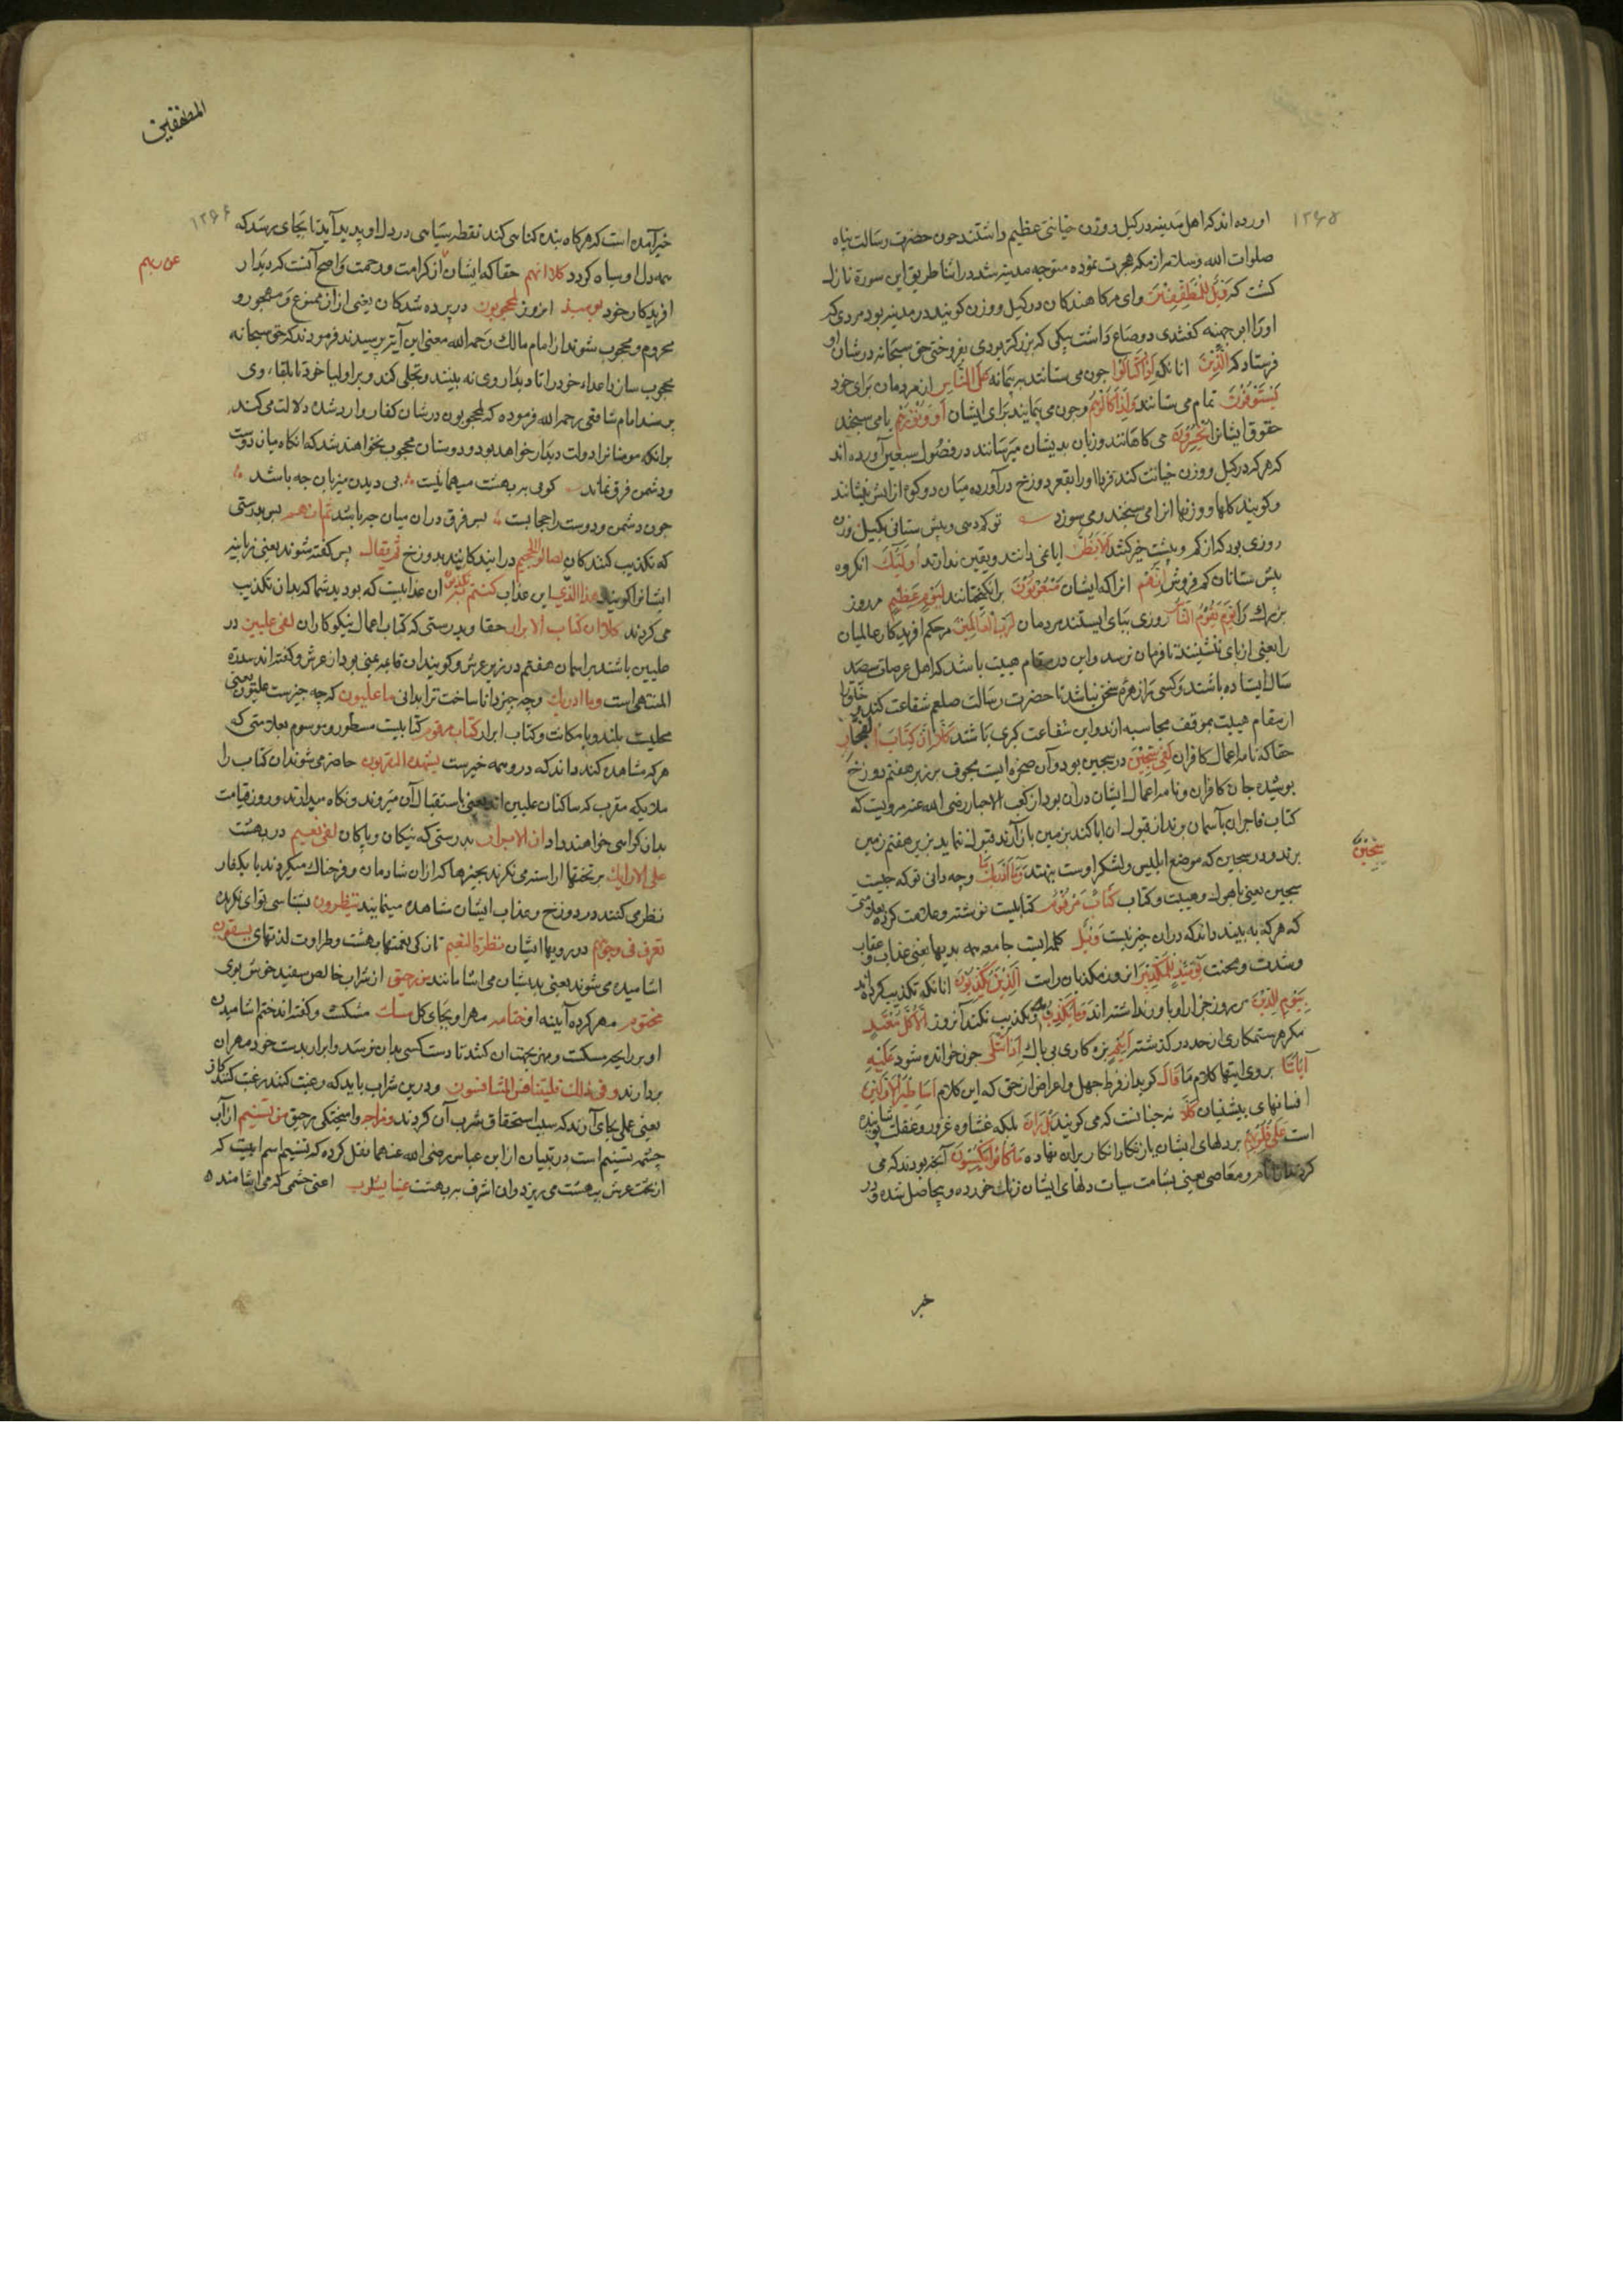 ۱۲۶۵
اورده اند که اهل مدینه در کیل و وزن خیانتی عظیم داشتند چون حضرت رسالت پناه
صلوات الله و سلامه از مکه هجرت نموده متوجه مدینه شد در اثنا طریق این سورة نازل
کشت که وَيْلٌ لِلْمُطَفِّفِينَ وای مر کاهندکان در کیل و وزن کویند در مدینه بود مردی که
اورا ابو جهینه کفتندی دو صاع داشت یکی که بزرکتر بودی بفروختی حق سبحانه در شان او
فرستاد که الَّذِينَ انانکه إِذَا اكْتَالُوا چون می ستانند به پیمانه عَلَى النَّاسِ از مردمان برای خود
يَسْتَوْفُونَ تمام می ستانند وَإِذَا كَالُوهُمْ و چون می پیمایند برای ایشان أَوْ وَزَنُوهُمْ یا می سنجند
حقوق ایشانرا يُخْسِرُونَ می کاهانند و زیان بدیشان میرسانند در فصول سبعین آورده اند
که هر که در کیل و وزن خیانت کند فردا اورا بقعر دوزخ درآورده میان دو کوه از اتش بنشانند
و کویند کلها و وزنها انرا می سنجد و می سوزد تو کم دهی و بیش ستانی بکیل و وزن
روزی بود که از کم و بیشت خبر کنند أَلَا يَظُنُّ ایا نمی دانند و یقین ندارند أُولَئِكَ انکروه
بیش ستانان کم فروش أَنَّهُمْ انرا که ایشان مَبْعُوثُونَ برانکیختانند لِيَوْمٍ عَظِيمٍ در روز
بزرک را يَوْمَ يَقُومُ النَّاسُ روزی بپای ایستند مردمان لِرَبِّ الْعَالَمِينَ مر حکم افریدکار عالمیان
را یعنی از پای ننشینند تا فرمان نرسد و این در مقام هیبت باشد که اهل عرصات سیصد
سال ایستاده باشند و کسی را زهره سخن نباشد تا حضرت رسالت صلعم شفاعت کند و خلق را
از مقام هیبت بموقف محاسبه ارند و این شفاعت کبری باشد كَلَّا إِنَّ كِتَابَ الْفُجَّارِ
حقا که نامه اعمال کافران لَفِي سِجِّينٍ در سجین بود و آن صخره ایست مجوف بر زیر هفتم دوزخ
پوشیده جان کافران و نامه اعمال ایشان در آن بود از کعب الاحبار رضی الله عنه مرویست که
کتاب فاجران بآسمان برند از قبول ان ابا کند بزمین باز آرند قبول ننماید بزیر هفتم زمین
برند و در سجین که موضع ابلیس و لشکر اوست بنهند وَمَا أَدْرَاكَ مَا و چه دانی تو که چیست
سِجِّينٌ
سجین یعنی باهول و هیبت و کتاب كِتَابٌ مَرْقُومٌ کتابیست نوشته و علامت کرده بعلامتی
که هر که به بیند داند که در ان خیر نیست وَيْلٌ کلمه ایست جامعه همه بدیها یعنی عذاب و عقاب
و شدت و محنت يَوْمَئِذٍ لِلْمُكَذِّبِينَ انروز مکذبان راست الَّذِينَ يُكَذِّبُونَ انانکه تکذیب کرده اند
بِيَوْمِ الدِّينِ بروز جزا و باور نداشته اند وَمَا يُكَذِّبُ بِهِ و تکذیب نکند آنروز إِلَّا كُلُّ مُعْتَدٍ
مکر هر ستمکاری از حد درکذشته أَثِيمٍ بزه کاری بی باک إِذَا تُتْلَى چون خوانده شود عَلَيْهِ
آيَاتُنَا بروی ایتها کلام ما قَالَ کوید از فرط جهل و اعراض از حق که این کلام أَسَاطِيرُ الْأَوَّلِينَ
افسانهای پیشینیان كَلَّا نه چنانست که می کویند بَلْ رَانَ بلکه غشاوه غرور و غفلت پوشانیده
است عَلَى قُلُوبِهِمْ بر دلهای ایشان یا زنکار انکار بران نهاده مَا كَانُوا يَكْسِبُونَ آنچه بودند که می
کردند از و معاصی یعنی بشامت سیات دلهای ایشان زنک خورده و بحاصل شده و در
خبر
المطففین
۱۲۶۶
خبر آمده است که هر کاه بنده کناهی کند نقطه سیاهی در دل او پدید آید تا بجای برسد که
همه دل او سیاه کردد كلا انهم حقا که ایشان از کرامت و رحمت و اصح آنست که دیدار
عن ربهم
افریدکار خود يومئذ امروز لمحجوبون در پرده شدکان یعنی از ان ممنوع و مهجور و
محروم و محجوب شوند از امام مالک رحمه الله معنی این آیت پرسیدند فرمودند که حق سبحانه
محجوب سازد اعداء خود را تا دیدار وی نه بینند و تجلی کند و بر اولیا خود تا بلقاء وی
برسند امام شافعی رحمه الله فرموده که لمحجوبون در شان کفار وارد شده دلالت می کند
برانکه مومنانرا دولت دیدار خواهد بود و دوستان محجوب نخواهند شد که انکاه میان دوست
و دشمن فرق نماند کویی بر بهشت میهمانیست بی دیدن میزبان چه باشد
چون دشمن و دوست را حجابست پس فرق دران میان چه باشد ثم انهم پس بدرستی
که تکذیب کنندکان لصالو الجحيم در ایندکانند بدوزخ ثم يقال پس کفته شوند یعنی زبانیه
ایشانرا کویند هذا الذي این عذاب كنتم به تكذبون ان عذابیست که بودید شما که بدان تکذیب
می کردند كلا ان كتاب الابرار حقا و بدرستی که کتاب اعمال نیکوکاران لفي عليين در
علیین باشند بر اسمان هفتم در زیر عرش و کویند ان قایمه یمنی بود از عرش و کفته اند سدرة
المنتهی است وما ادريك و چه چیز دانا ساخت ترا بدانی ما عليون که چه چیزست علیون یعنی
محلیست بلند و با مکانت و کتاب ابرار كتاب مرقوم کتابیست مسطور و موسوم بعلامتی که
هر که مشاهده کند داند که درو همه خیرست يشهده المقربون حاضر می شوند ان کتاب را
ملایکه مقرب که ساکنان علیین اند یعنی استقبال آن میروند و نکاه میدارند و روز قیامت
بدان کواهی خواهند داد ان الابرار بدرستی که نیکان و پاکان لفي نعيم در بهشت
على الارايك بر تختها اراسته می نکرند بچیزها که ازان شادمان و فرحناک میکردند یا بکفار
نظر می کنند در دوزخ و عذاب ایشان مشاهده مینمایند ينظرون بشناسی تو ای نکرنده
تعرف في وجوههم در رویها ایشان نضرة النعيم تازکی نعمتها بهشت و طراوت لذتهای يسقون
اشامیده می شوند یعنی بدیشان می اشامانند من رحيق از شراب خالص سفید خوش بوی
مختوم مهر کرده آیینه او ختامه مهر او بجای کل مسك مشکست و کفته اند ختم اشامیدن
او بر رایحه مسکست و مهر بجهت ان کنند تا دست کسی بدان نرسد و ابرار بدست خود مهر ان
بردارند وفي ذلك فليتنافس المتنافسون و درین شراب باید که رغبت کنند رغبت کنندکان
یعنی عملی بجای آورند که سبب استحقاق شرب آن کردند ومزاجه و امیختکی رحیق من تسنيم از آب
چشمه تسنیم است در تبیان از ابن عباس رضی الله عنهما نقل کرده که تسنیم اسم ابیست که
از تحت عرش به بهشت می ریزد و ان اشرف بر بهشت عينا يشرب اعنی چشمی که می اشامند